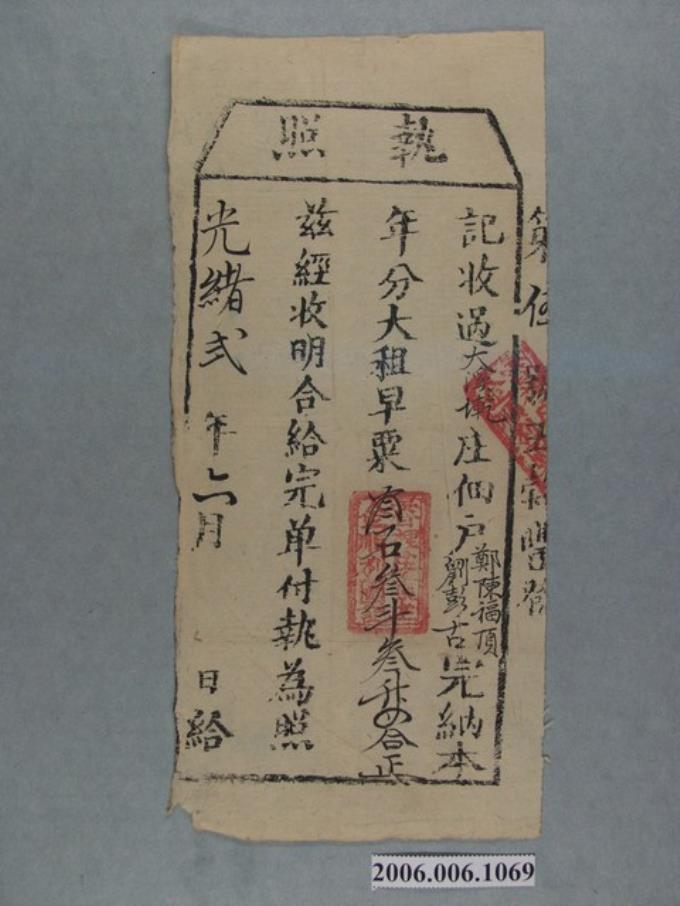 執照
第伍
記收過大溪墘庄佃戶鄭陳福頂劉彭古完納本
年分大租早粟叁石叁斗叁升合正
茲經收明合給完单付執為照
光緒弍年六月日給
2006.006.1069